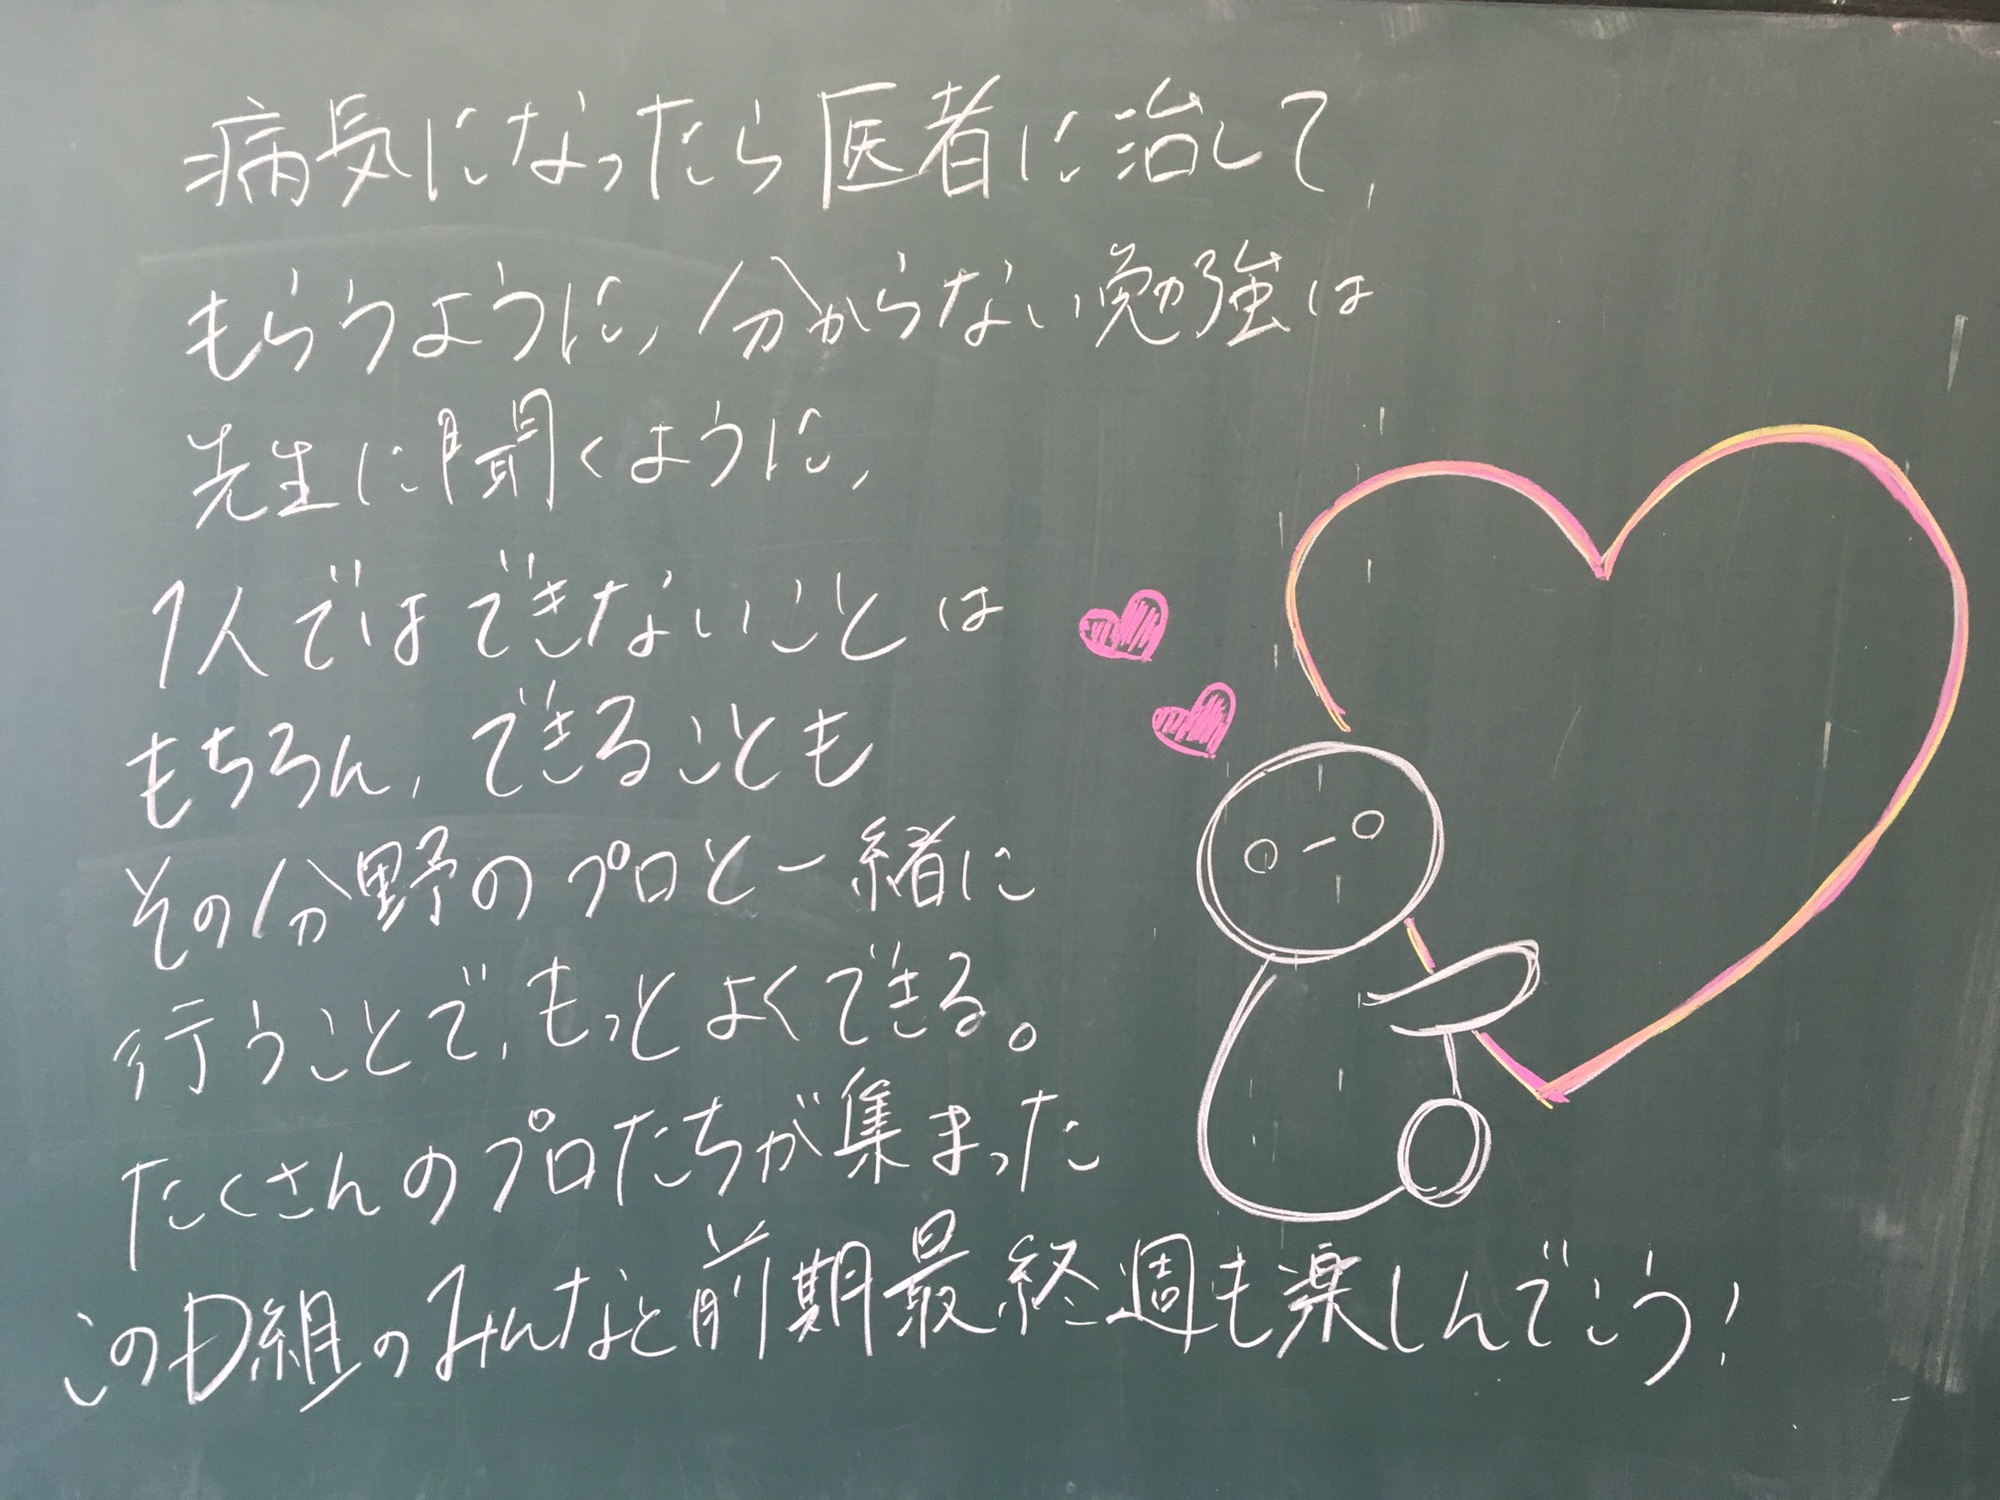 病気になったら医者に治して,
もらうように,分からない勉強は
先生に聞くように,
1人ではできないことは
もちろん,できることも
その分野のプロと一緒に
行うことで,もっとよくできる。
たくさんのプロたちが集まった
このD組のみんなと前期最終週も楽しんでこう!